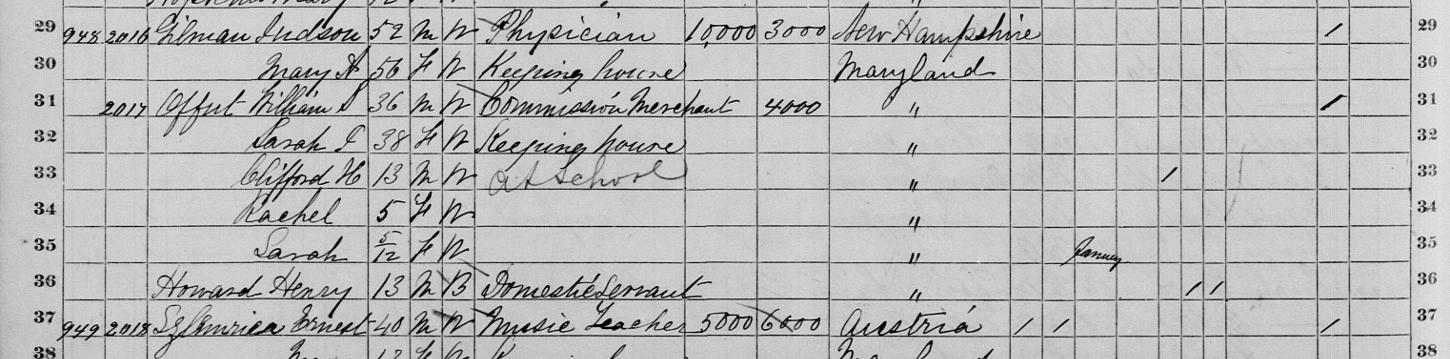 29 948 2016 Gilman Judson 52 M W Physician 10,000 3000 New Hampshire / 29
30 Mary A 56 F W Keeping house Maryland 30
31 2017 Offut William S 36 M W Commission Merchant 4000 " / 31
32 Sarah I 38 F W Keeping house " 32
33 Clifford H 13 M W At School " / 33
34 Rachel 5 F W " 34
35 Sarah 5/12 F W " January 35
36 Howard Henry 13 M B Domestic Servant " / / 36
37 949 2018 Ernest 40 M W Music Teacher 5000 6000 Austria / / / 37
38 F W Maryland 38